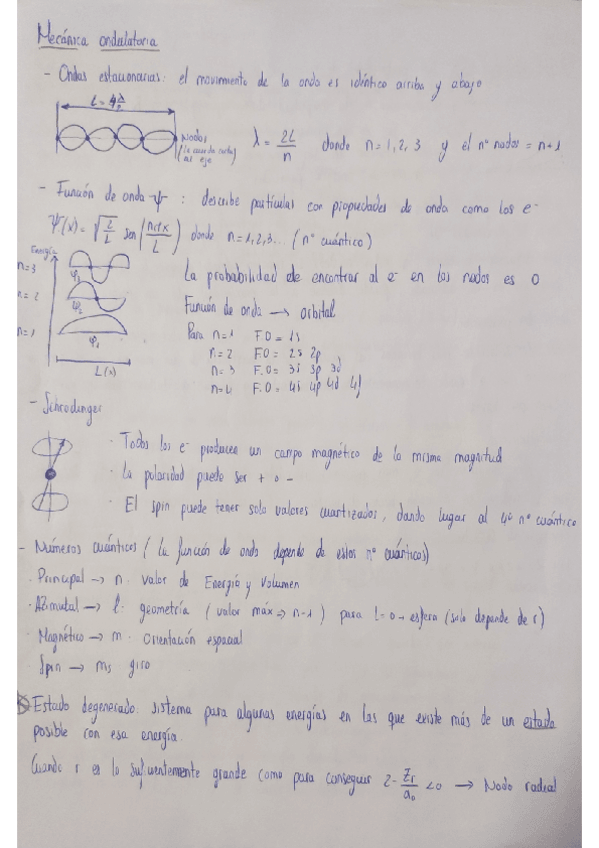 Mecánica ondulatoria
- Ondas estacionarias: el movimiento de la onda es idéntico arriba y abajo
L = 4 λ/2
Nodos
(la cuerda corta al eje)
λ = 2L/n donde n = 1, 2, 3 y el nº nodos = n+1
- Función de onda ψ : describe partículas con propiedades de onda como los e⁻
ψ(x) = √(2/L) sen(nπx/L) donde n = 1,2,3... (nº cuántico)
Energía
n=3
φ3
n=2
φ2
n=1
φ1
L(x)
La probabilidad de encontrar al e⁻ en los nodos es 0
Función de onda → orbital
Para n=1 F.O = 1s
n=2 F.O = 2s 2p
n=3 F.O = 3s 3p 3d
n=4 F.O = 4s 4p 4d 4f
- Schrodinger
· Todos los e⁻ producen un campo magnético de la misma magnitud
· La polaridad puede ser + o -
· El spin puede tener solo valores cuantizados, dando lugar al 4º nº cuántico
- Números cuánticos (la función de onda depende de estos nº cuánticos)
· Principal → n · valor de Energía y Volumen
· Azimutal → l · geometría (valor máx ⇒ n-1) para l=0 → esfera (solo depende de r)
· Magnético → m · Orientación espacial
· Spin → ms giro
Estado degenerado: sistema para algunas energías en las que existe más de un estado
posible con esa energía.
Cuando r es lo suficientemente grande como para conseguir 2 - Zr/a₀ < 0 → Nodo radial